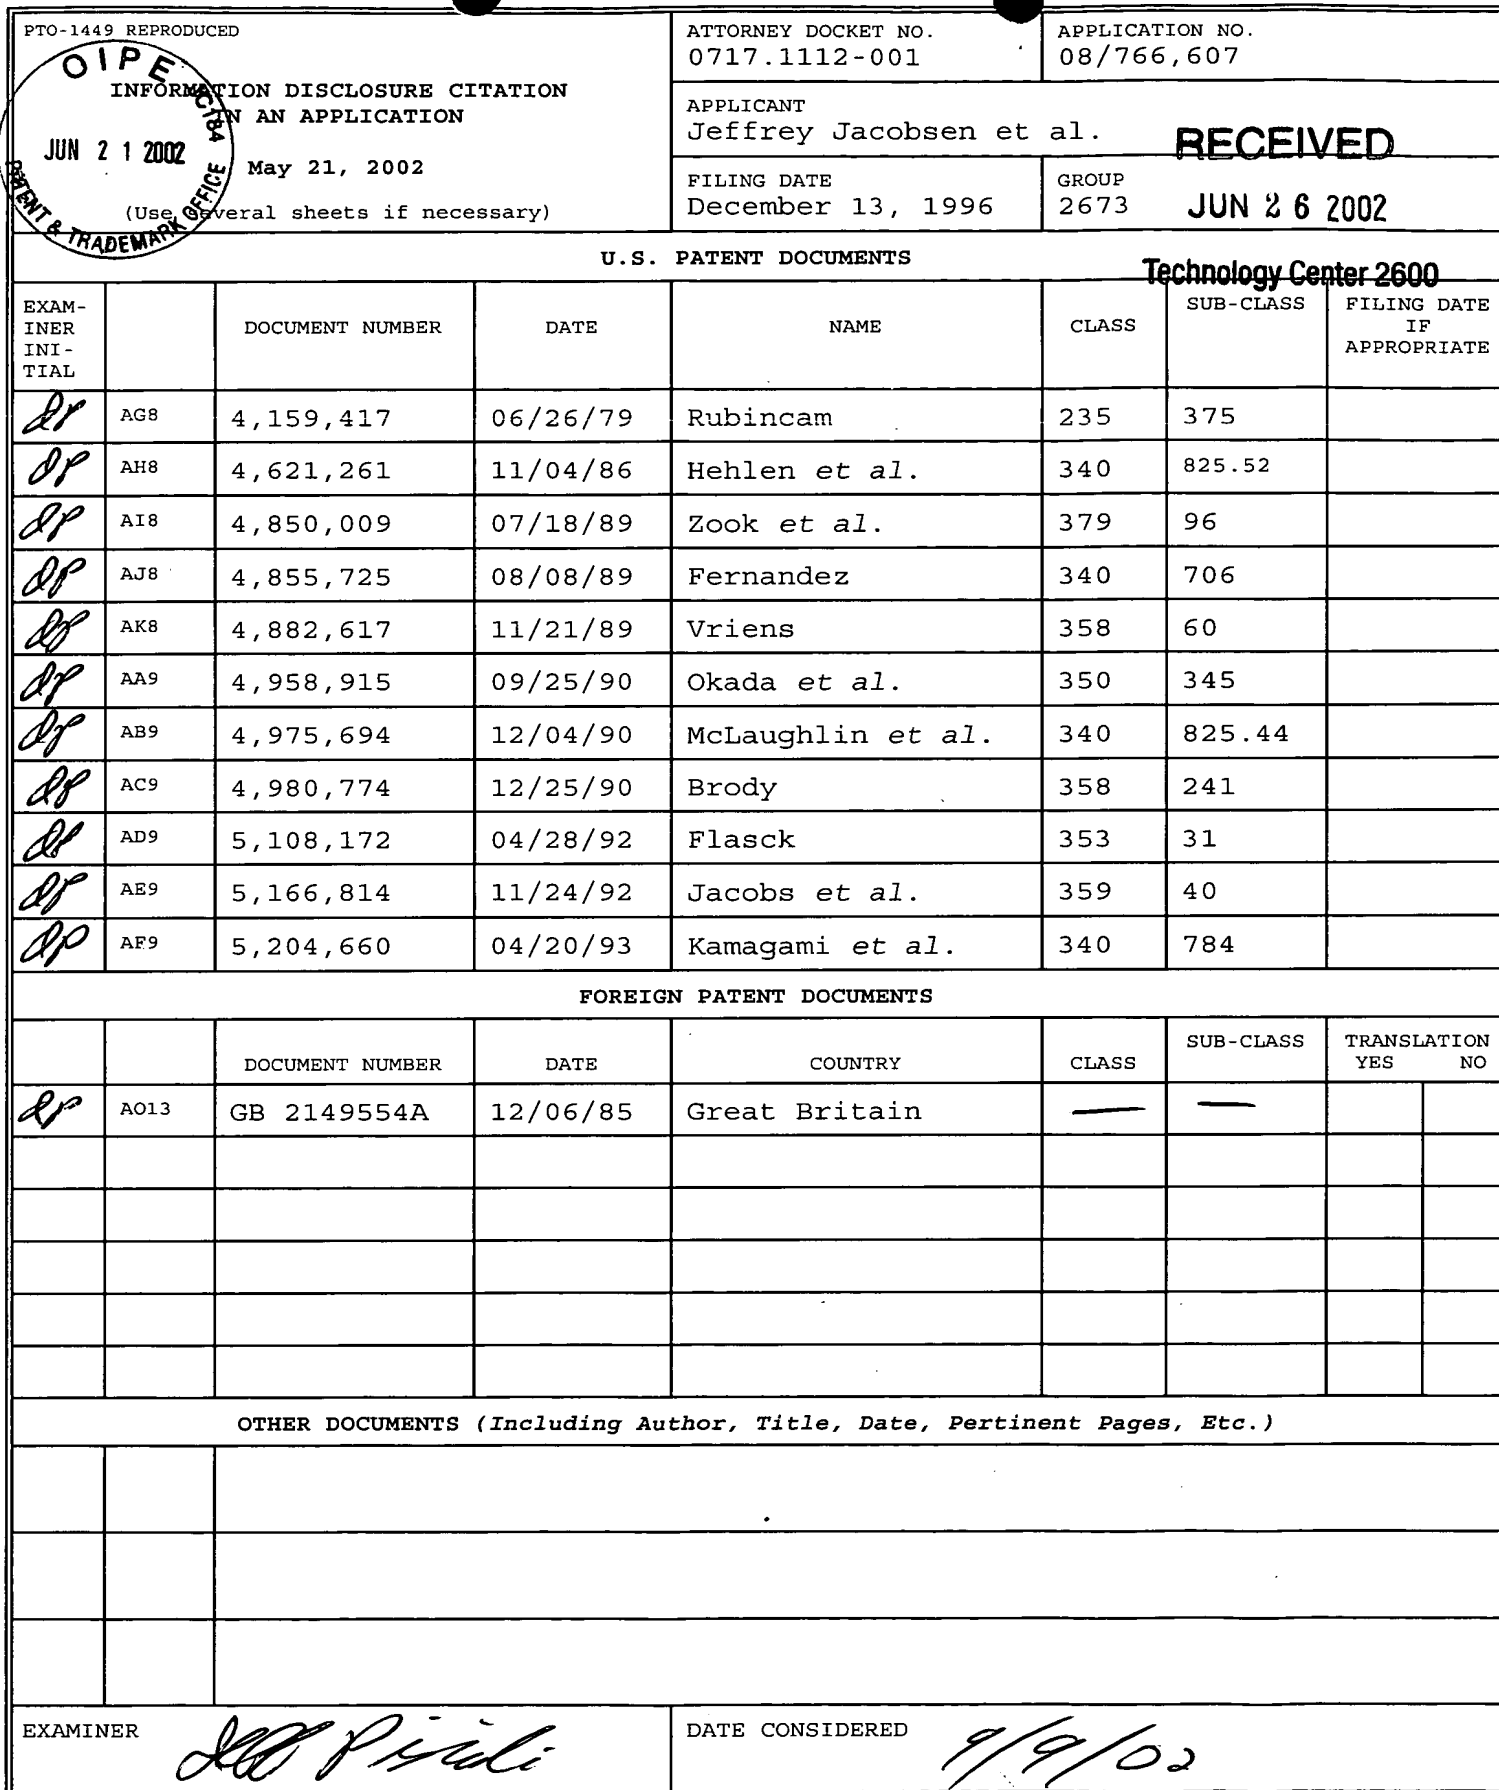 PTO-1449 REPRODUCED
INFORMATION DISCLOSURE CITATION
IN AN APPLICATION
May 21, 2002
(Use several sheets if necessary)
OIPE
JUN 21 2002
PATENT & TRADEMARK OFFICE
ATTORNEY DOCKET NO.
0717.1112-001
APPLICATION NO.
08/766,607
APPLICANT
Jeffrey Jacobsen et al.
RECEIVED
FILING DATE
December 13, 1996
GROUP
2673
JUN 26 2002
U.S. PATENT DOCUMENTS
Technology Center 2600
EXAM-
INER
INI-
TIAL
DOCUMENT NUMBER DATE NAME CLASS SUB-CLASS FILING DATE
IF
APPROPRIATE
AG8 4,159,417 06/26/79 Rubincam 235 375
AH8 4,621,261 11/04/86 Hehlen et al. 340 825.52
AI8 4,850,009 07/18/89 Zook et al. 379 96
AJ8 4,855,725 08/08/89 Fernandez 340 706
AK8 4,882,617 11/21/89 Vriens 358 60
AA9 4,958,915 09/25/90 Okada et al. 350 345
AB9 4,975,694 12/04/90 McLaughlin et al. 340 825.44
AC9 4,980,774 12/25/90 Brody 358 241
AD9 5,108,172 04/28/92 Flasck 353 31
AE9 5,166,814 11/24/92 Jacobs et al. 359 40
AF9 5,204,660 04/20/93 Kamagami et al. 340 784
FOREIGN PATENT DOCUMENTS
DOCUMENT NUMBER DATE COUNTRY CLASS SUB-CLASS TRANSLATION
YES NO
AO13 GB 2149554A 12/06/85 Great Britain — —
OTHER DOCUMENTS (Including Author, Title, Date, Pertinent Pages, Etc.)
EXAMINER
DATE CONSIDERED 9/9/02